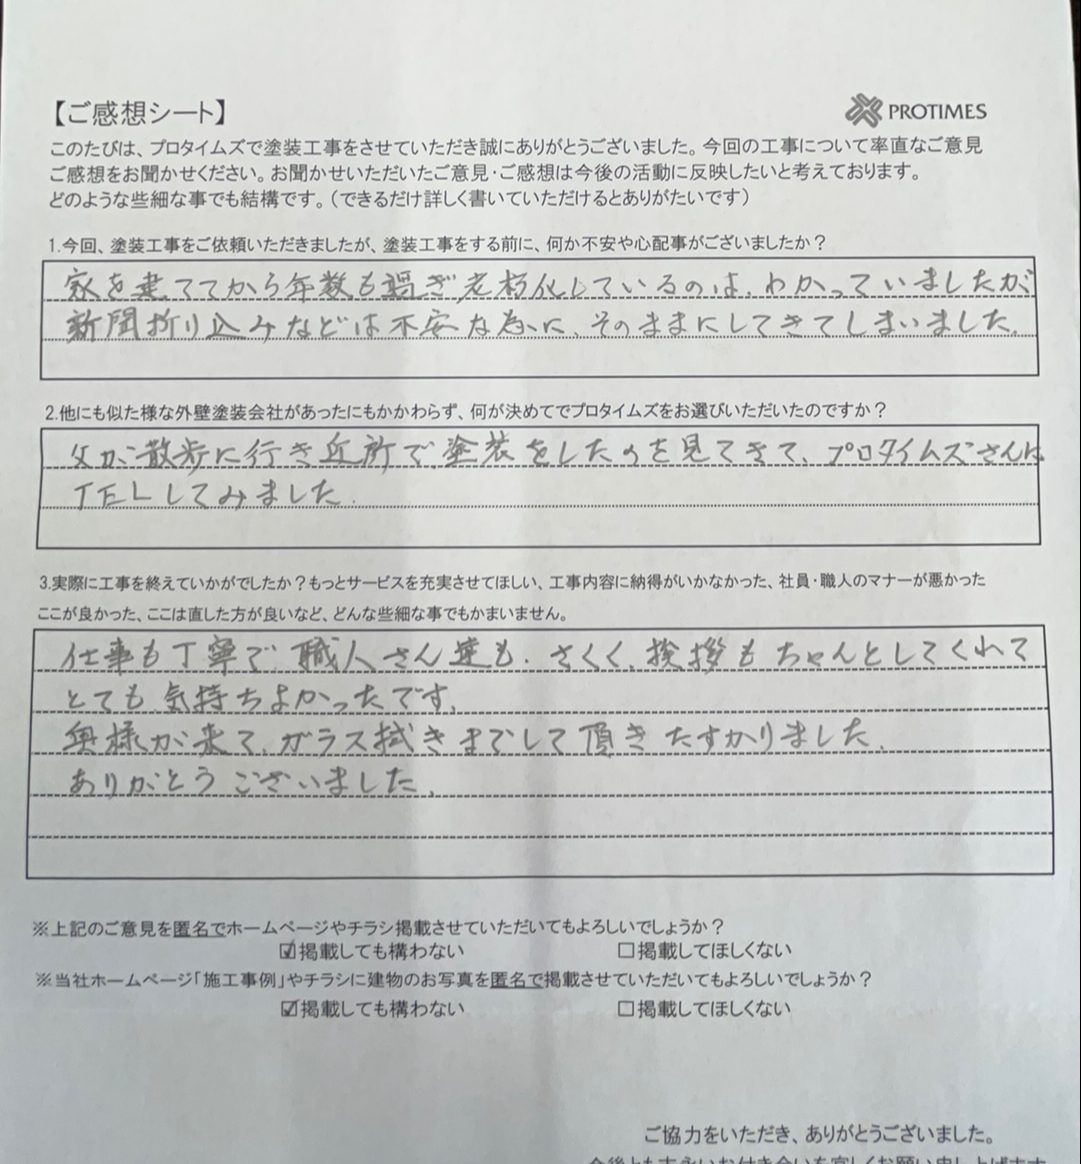 【ご感想シート】
PROTIMES
このたびは、プロタイムズで塗装工事をさせていただき誠にありがとうございました。今回の工事について率直なご意見
ご感想をお聞かせください。お聞かせいただいたご意見・ご感想は今後の活動に反映したいと考えております。
どのような些細な事でも結構です。(できるだけ詳しく書いていただけるとありがたいです)
1.今回、塗装工事をご依頼いただきましたが、塗装工事をする前に、何か不安や心配事がございましたか?
家を建ててから年数も過ぎ老朽化しているのは、わかっていましたが
新聞折り込みなどは不安な為に、そのままにしてきてしまいました。
2.他にも似た様な外壁塗装会社があったにもかかわらず、何が決めてでプロタイムズをお選びいただいたのですか?
父が散歩に行き近所で塗装をしたのを見てきて、プロタイムズさんに
TELしてみました。
3.実際に工事を終えていかがでしたか?もっとサービスを充実させてほしい、工事内容に納得がいかなかった、社員・職人のマナーが悪かった
ここが良かった、ここは直した方が良いなど、どんな些細な事でもかまいません。
仕事も丁寧で職人さん達も、きさくく、挨拶もちゃんとしてくれて
とても気持ちよかったです。
奥様が来て、ガラス拭きまでして頂きたすかりました。
ありがとうございました。
※上記のご意見を匿名でホームページやチラシ掲載させていただいてもよろしいでしょうか?
☑掲載しても構わない ☐掲載してほしくない
※当社ホームページ「施工事例」やチラシに建物のお写真を匿名で掲載させていただいてもよろしいでしょうか?
☑掲載しても構わない ☐掲載してほしくない
ご協力をいただき、ありがとうございました。